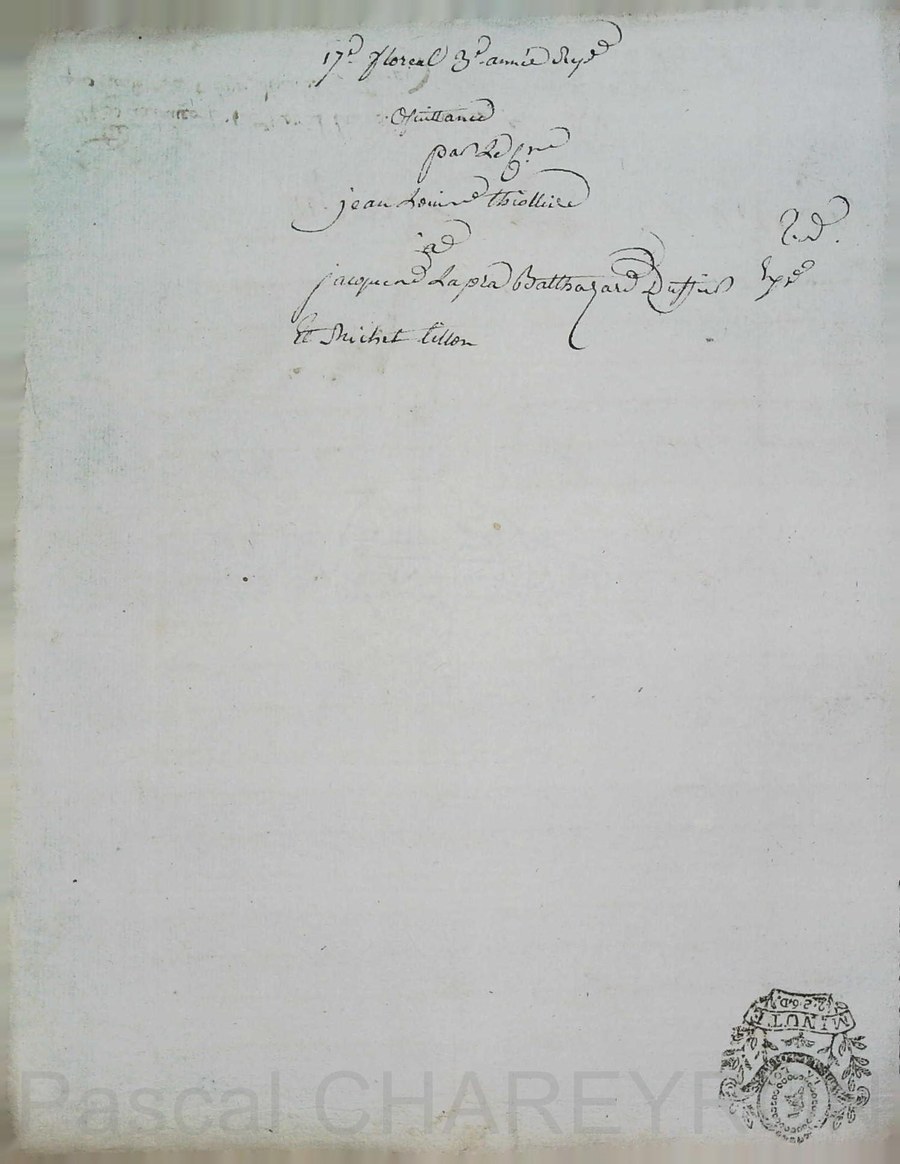 17e floréal 3e année Rép.e
Quittance
par Le
jean Louis thiollier
à
jacques Lapra Balthazard Duffieu
Et Michel tillon
2. S. 6. D.
MINUTE
LA LOI
Pascal CHAREYRON